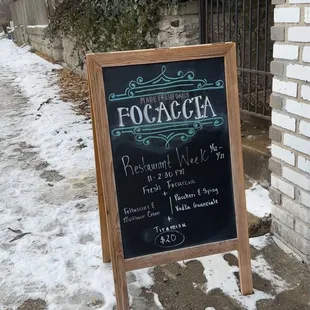 MADE FRESH DAILY
FOCACCIA
Restaurant Week
11-2:30 PM
Fresh Focaccia
+
Fettuccine &
Mushroom Cream
Rigatoni & Spicy
Vodka Guanciale
+
Tiramisu
$20